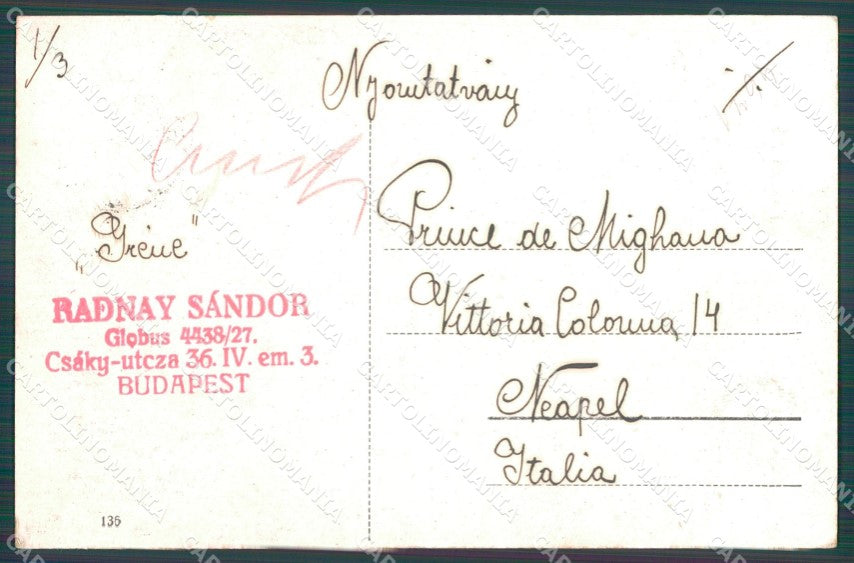 1/3
Nyomtatvány
"/.
„Iréne"
RADNAY SÁNDOR
Globus 4438/27.
Csáky-utcza 36. IV. em. 3.
BUDAPEST
Prince de Mighana
Vittoria Colonna, 14
Neapel
Italia
136
CARTOLINOMANIA